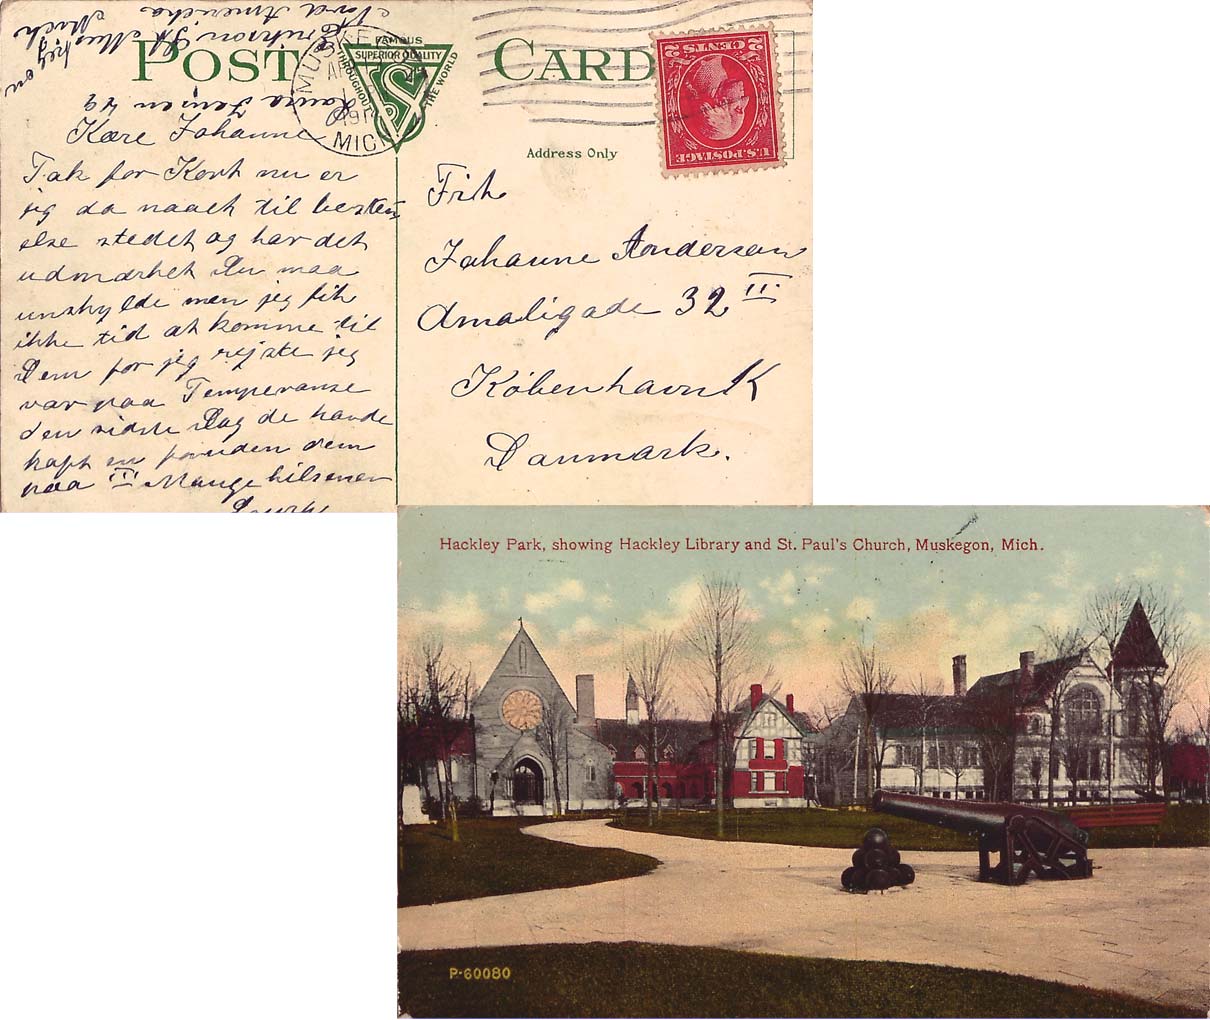 POST CARD
FAMOUS
SUPERIOR QUALITY
THROUGHOUT
THE WORLD
MUSKEGON
MICH
Address Only
2 CENTS 2
U.S. POSTAGE
Laura Jensen 49
Erikson St Mus
keg on
Mich
Nord Americka
Kære Johanne
Tak for Kort nu er
jeg da naaet til bestem
else stedet og har det
udmærket Du maa
unskylde men jeg fik
ikke tid at komme til
Dem for jeg rejste jeg
var paa Temperanse
den sidste Dag de havde
kaft en foruden dem
paa III Mange hilsener
Laura
Frk
Johanne Andersen
Amaligade 32 II.
København K
Danmark.
Hackley Park, showing Hackley Library and St. Paul's Church, Muskegon, Mich.
P-60080